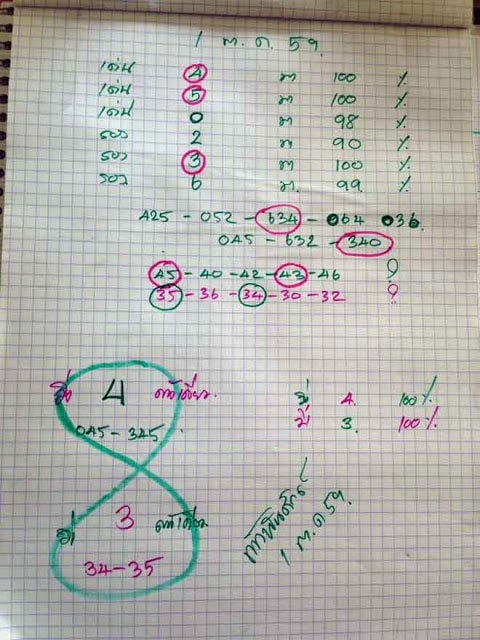 1 ต.ค. 59.
เด่น 4 มา 100 %
เด่น 5 มา 100 %
เด่น 0 มา 98 %
รอง 2 มา 90 %
รอง 3 มา 100 %
รอง 6 มา. 99. %
425 - 052 - 634 - 064 036.
045 - 632 - 340
45 - 40 - 42 - 43 - 46 ?
35 - 36 - 34 - 30 - 32 ?
4 ตัวเดียว.
045 - 345.
4. 100%
3. 100%
3 ตัวเดียว.
34-35
1 ต.ค 59.